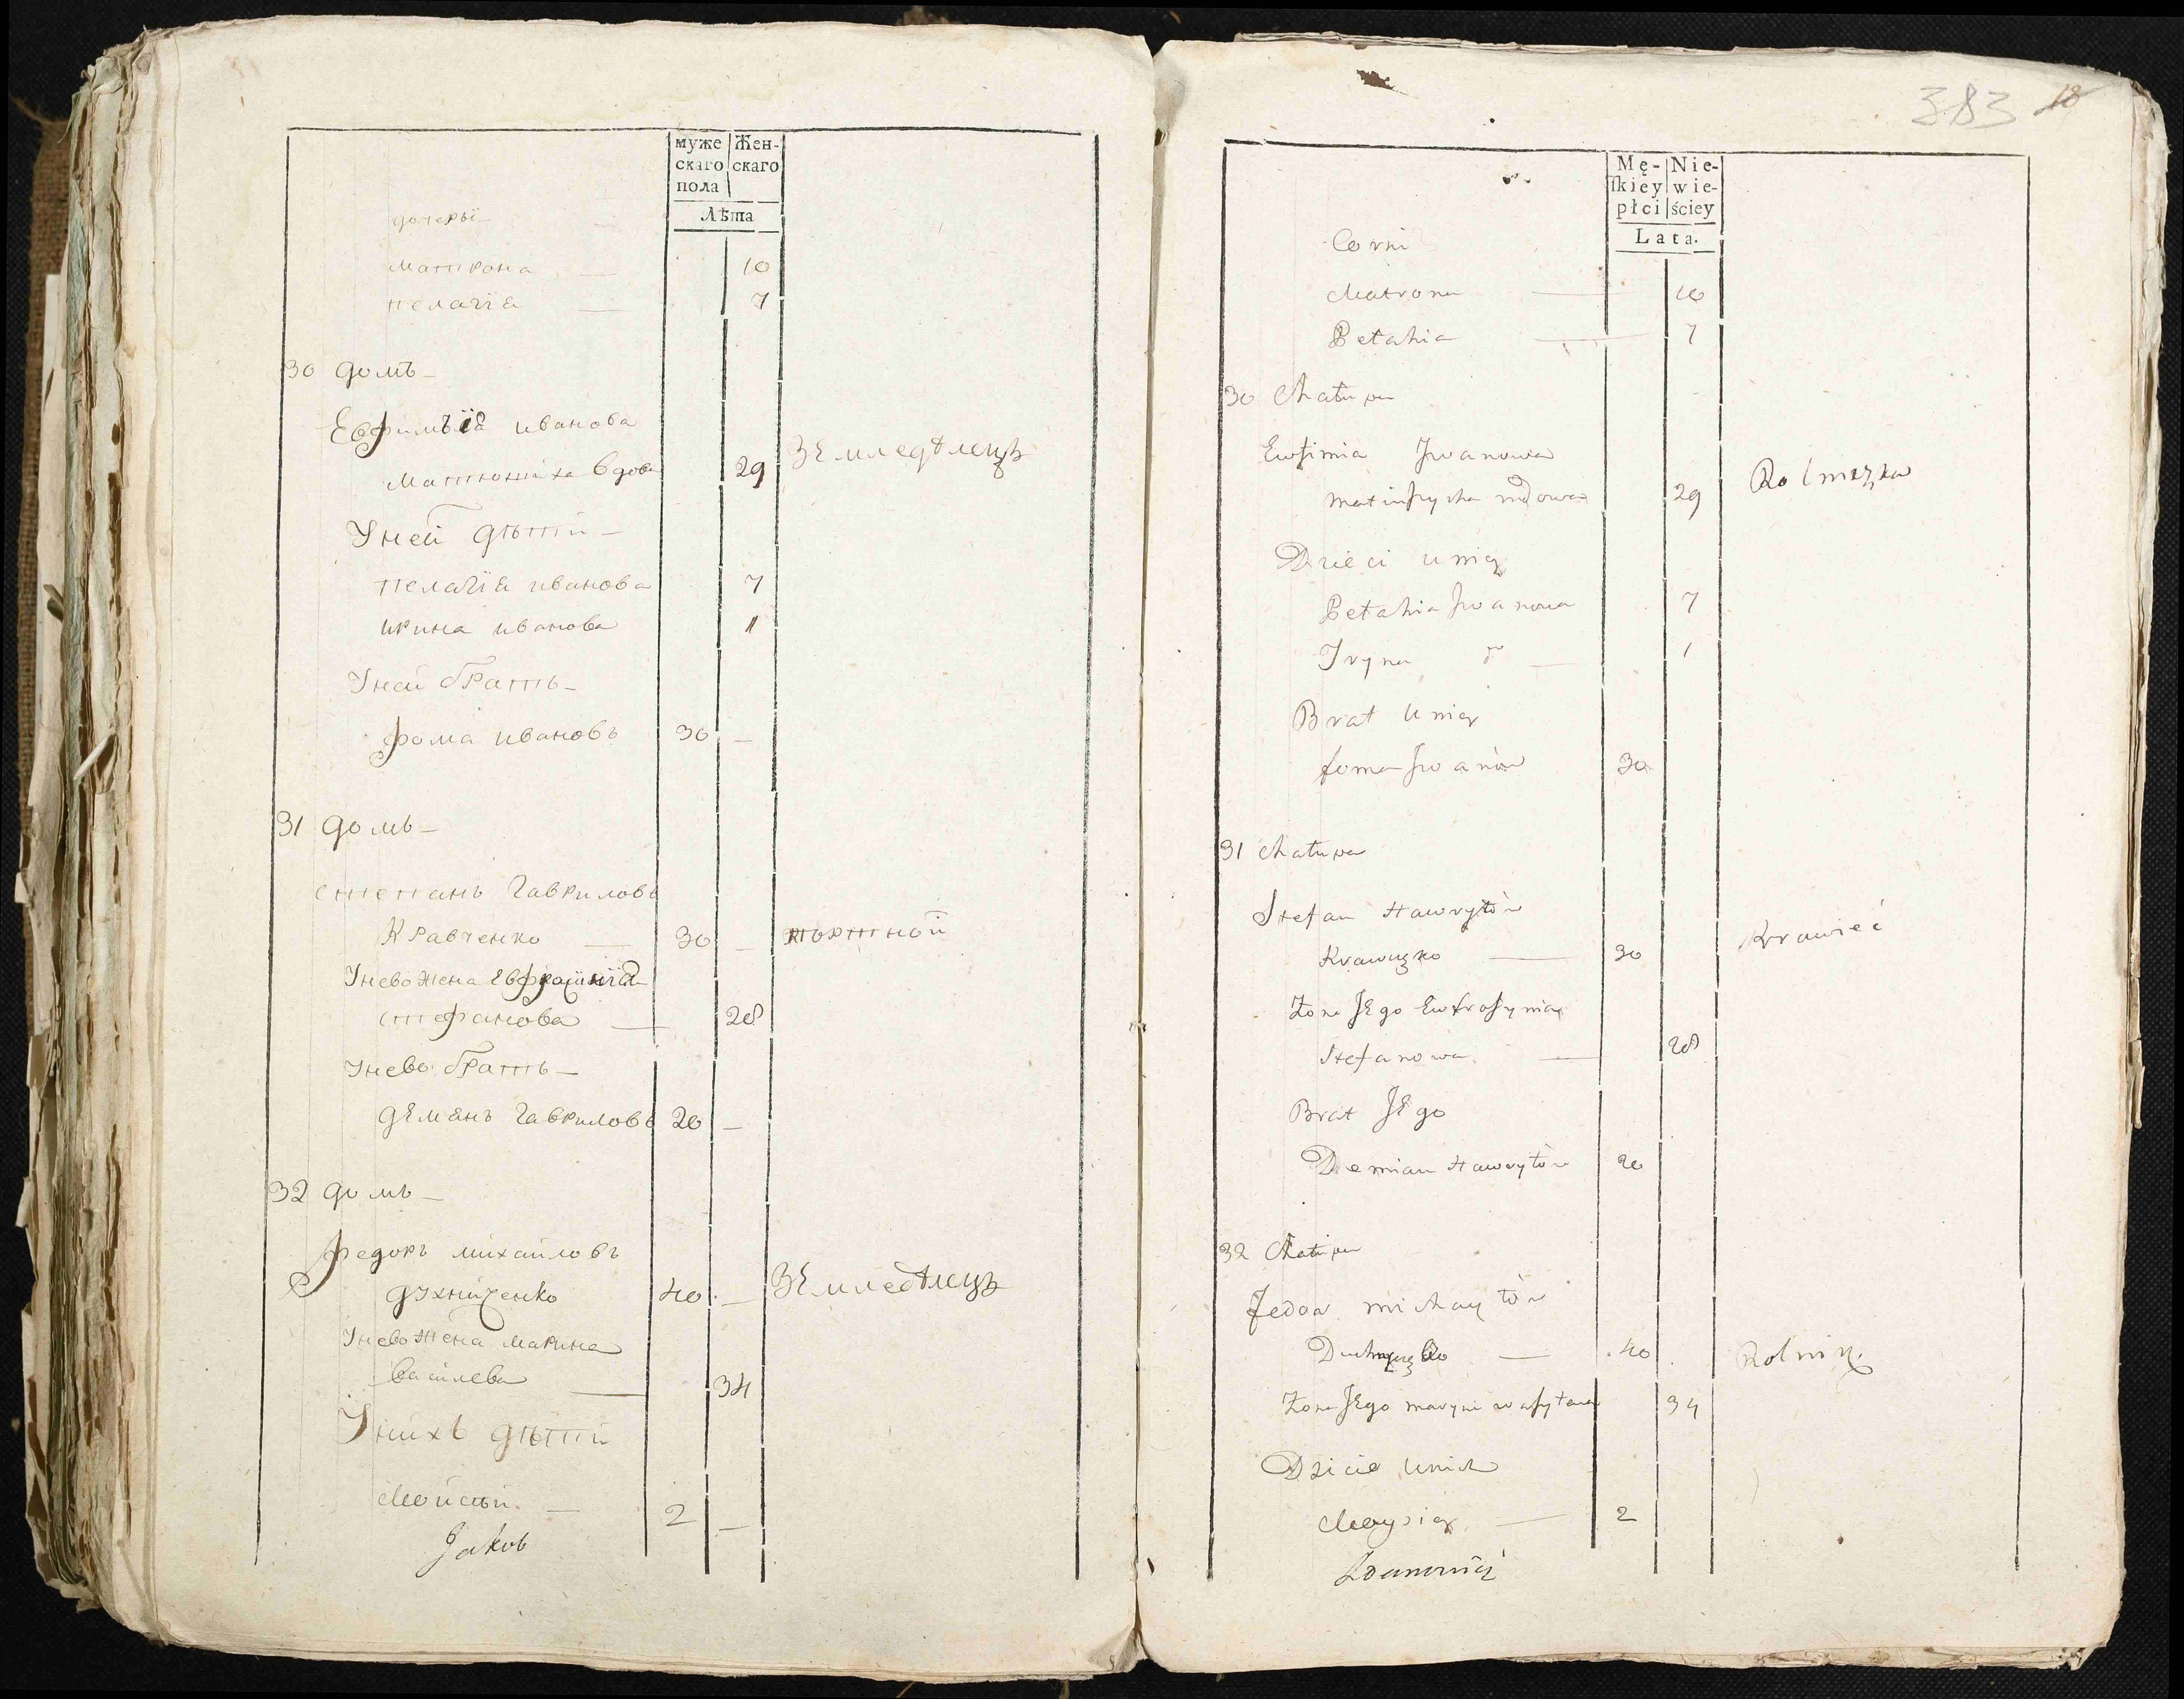 муже
скаго
пола
Жен-
скаго
Лѣта
дочеры
матрона — 10
пелагїа — 7
30 домъ
Евфимѣїа иванова
матюшиха вдова 29 Землѣделецъ
Уней дѣтти
пелагїа иванова 7
ирина иванова 1
Уней братъ
фома ивановъ 30 —
31 домъ
степанъ гавриловъ
Кравченко — 30 — портной
Унево жена Евфросинїа
стефанова — 28
Унево братъ
демянъ гавриловъ 20 —
32 домъ
федоръ михаиловъ
духниченко 40 — Земледѣлецъ
Унево жена марина
василева — 34
Унихъ дѣтти
Мойсѣй — 2 —
Jakob
383 18
Mę-
skiey
płci
Nie-
wie-
ściey
Lata.
Corni
Matrona — 10
Pelahia — 7
30 Chatupa
Eufimia Jwanowa
matiuszycha wdowa 29 Rolniczka
Dzieci u niey
Pelahia Jwanowa 7
Jryna — 1
Brat u niey
foma Jwanów 30
31 Chatupa
Stefan Hawryłów
Krawczko — 30 Krawieć
Żona Jego Eufrosynia
Stefanowa — 28
Brat Jego
Demian Hawryłów 20
32 Chatupa
fedor michayłów
— 40 Rolnik.
Żona Jego maryna wasylowa 34
Dzicie u nich
Moysiey — 2
Zdanowicz